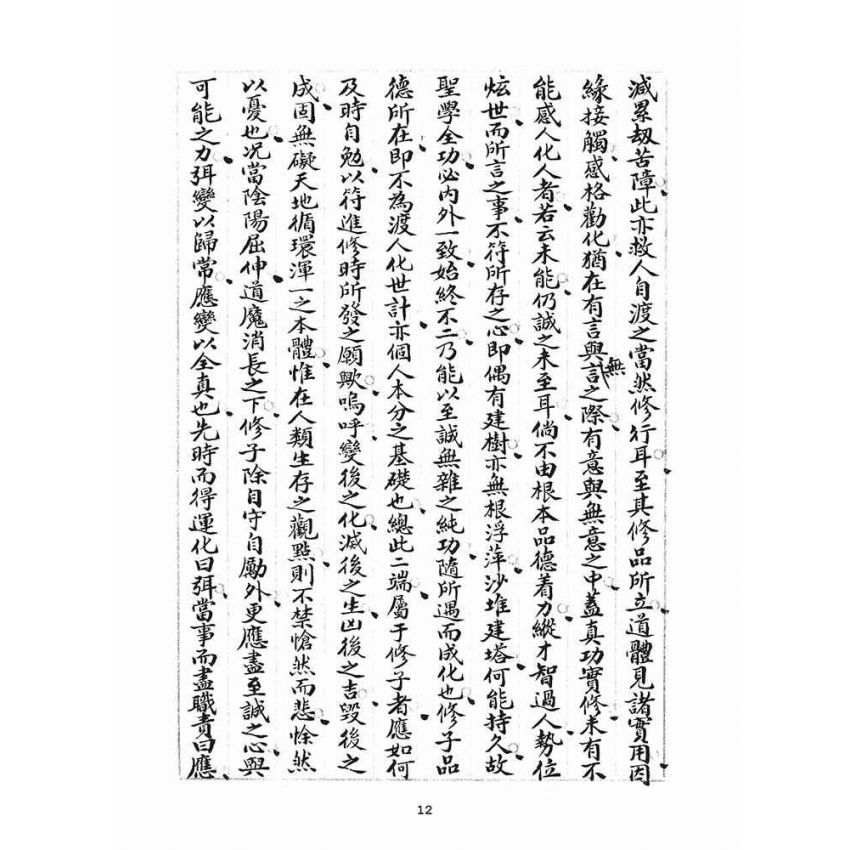 減累劫苦障此亦救人自渡之當然修行耳至其修品所立道體見諸實用因
緣接觸感格勸化猶在有言與無言之際有意與無意之中蓋真功實修未有不
能感人化人者若云未能仍誠之未至耳倘不由根本品德着力縱才智過人勢位
炫世而所言之事不符所存之心即偶有建樹亦無根浮萍沙堆建塔何能持久故
聖學全功必內外一致始終不二乃能以至誠無雜之純功隨所遇而成化也修子品
德所在即不為渡人化世計亦個人本分之基礎也總此二端屬于修子者應如何
及時自勉以符進修時所發之願歟嗚呼變後之化滅後之生凶後之吉毀後之
成固無礙天地循環渾一之本體惟在人類生存之觀點則不禁愴然而悲悇然
以憂也況當陰陽屈伸道魔消長之下修子除自守自勵外更應盡至誠之心與
可能之力弭變以歸常應變以全真也先時而得運化曰弭當事而盡職責曰應
12